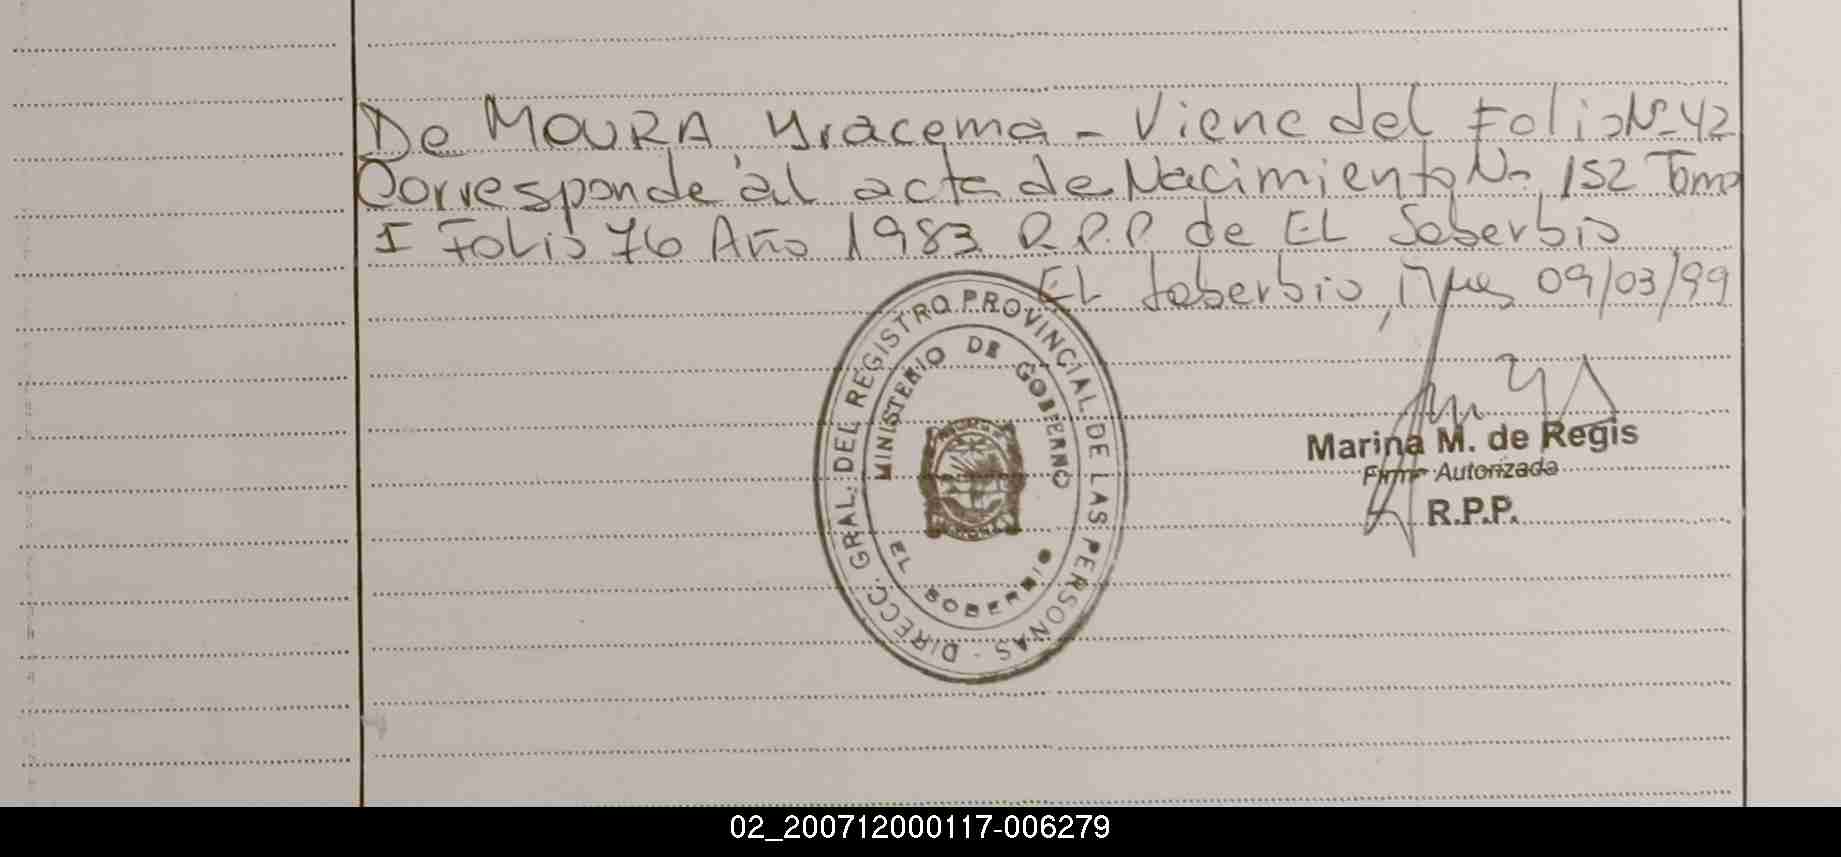 De MOURA Yracema - Viene del Folio Nº 42
Corresponde al acta de Nacimiento Nº 152 Tomo
I Folio 76 Año 1983 R.P.P. de EL Soberbio
EL Soberbio, Mnes 09/03/99
DIRECC. GRAL. DEL REGISTRO PROVINCIAL DE LAS PERSONAS -
MINISTERIO DE GOBIERNO
EL SOBERBIO
Marina M. de Regis
Firma Autorizada
R.P.P.
02_200712000117-006279